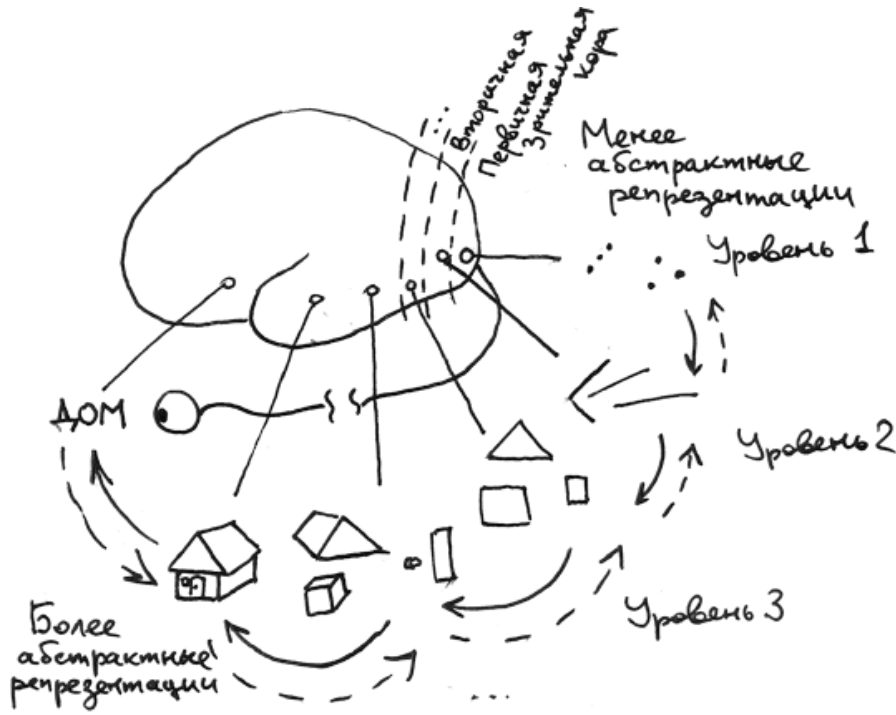 ...
Вторичная
Первичная
Зрительная
кора
Менее
абстрактные
репрезентации
Уровень 1
ДОМ
Уровень 2
Уровень 3
Более
абстрактные
репрезентации
...